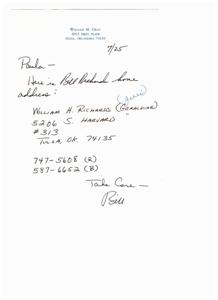 WILLIAM M. GRAY
TULSA, OKLAHOMA
7/25
Paula —
Here is Bill Richards home
address:
WILLIAM H. RICHARDS (GERALDINE)
5206 S. HARVARD
#313
TULSA, OK. 74135
747-5608 (R)
587-6652 (B)
Take Care —
Bill